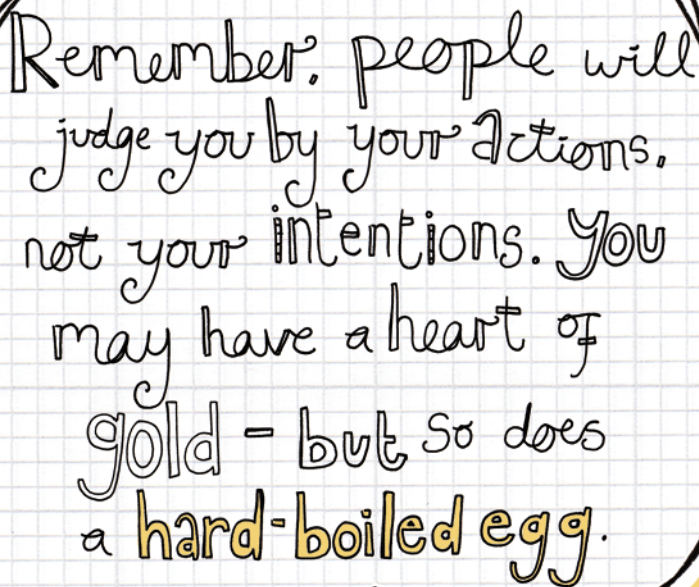 Remember, people will
judge you by your actions,
not your intentions. You
may have a heart of
gold - but so does
a hard-boiled egg.